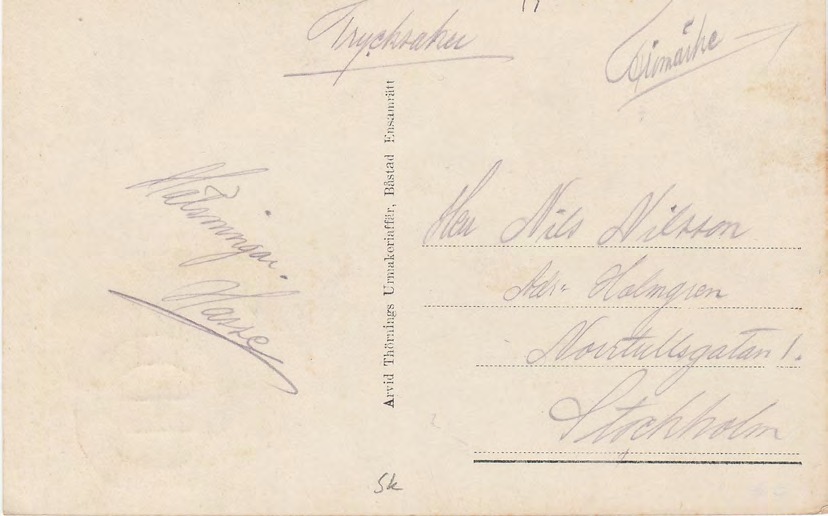 Trycksaker
Frimärke
Hälsningar.
Hasse
Arvid Thörnings Urmakeriaffär, Båstad Ensamrätt
Herr Nils Nilsson
Adr. Holmgren
Norrtullsgatan 1.
Stockholm
Sk